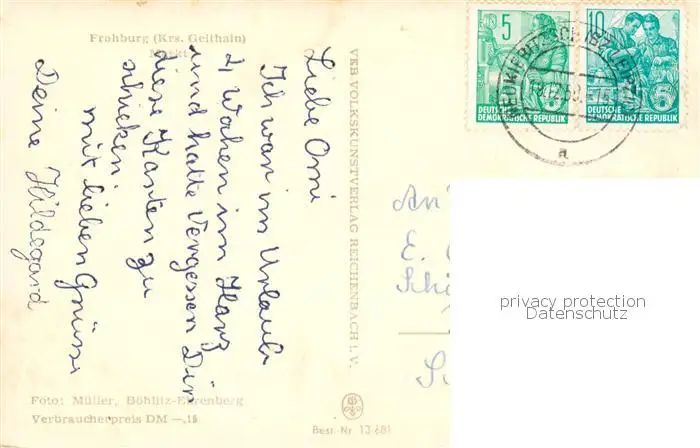 Frohburg (Krs. Geithain)
Markt
Liebe Omi
Ich war im Urlaub
2 Wochen im Harz
und hatte vergessen Dir
diese Karten zu
schicken.
mit lieben Grüssen
Deine Hildegard
Foto: Müller, Böhlitz-Ehrenberg
Verbraucherpreis DM —,15
VEB VOLKSKUNSTVERLAG REICHENBACH i.V.
Best.-Nr 13-681
5
DEUTSCHE
DEMOKRATISCHE REPUBLIK
10
DEUTSCHE
DEMOKRATISCHE REPUBLIK
a
An
E.
privacy protection
Datenschutz